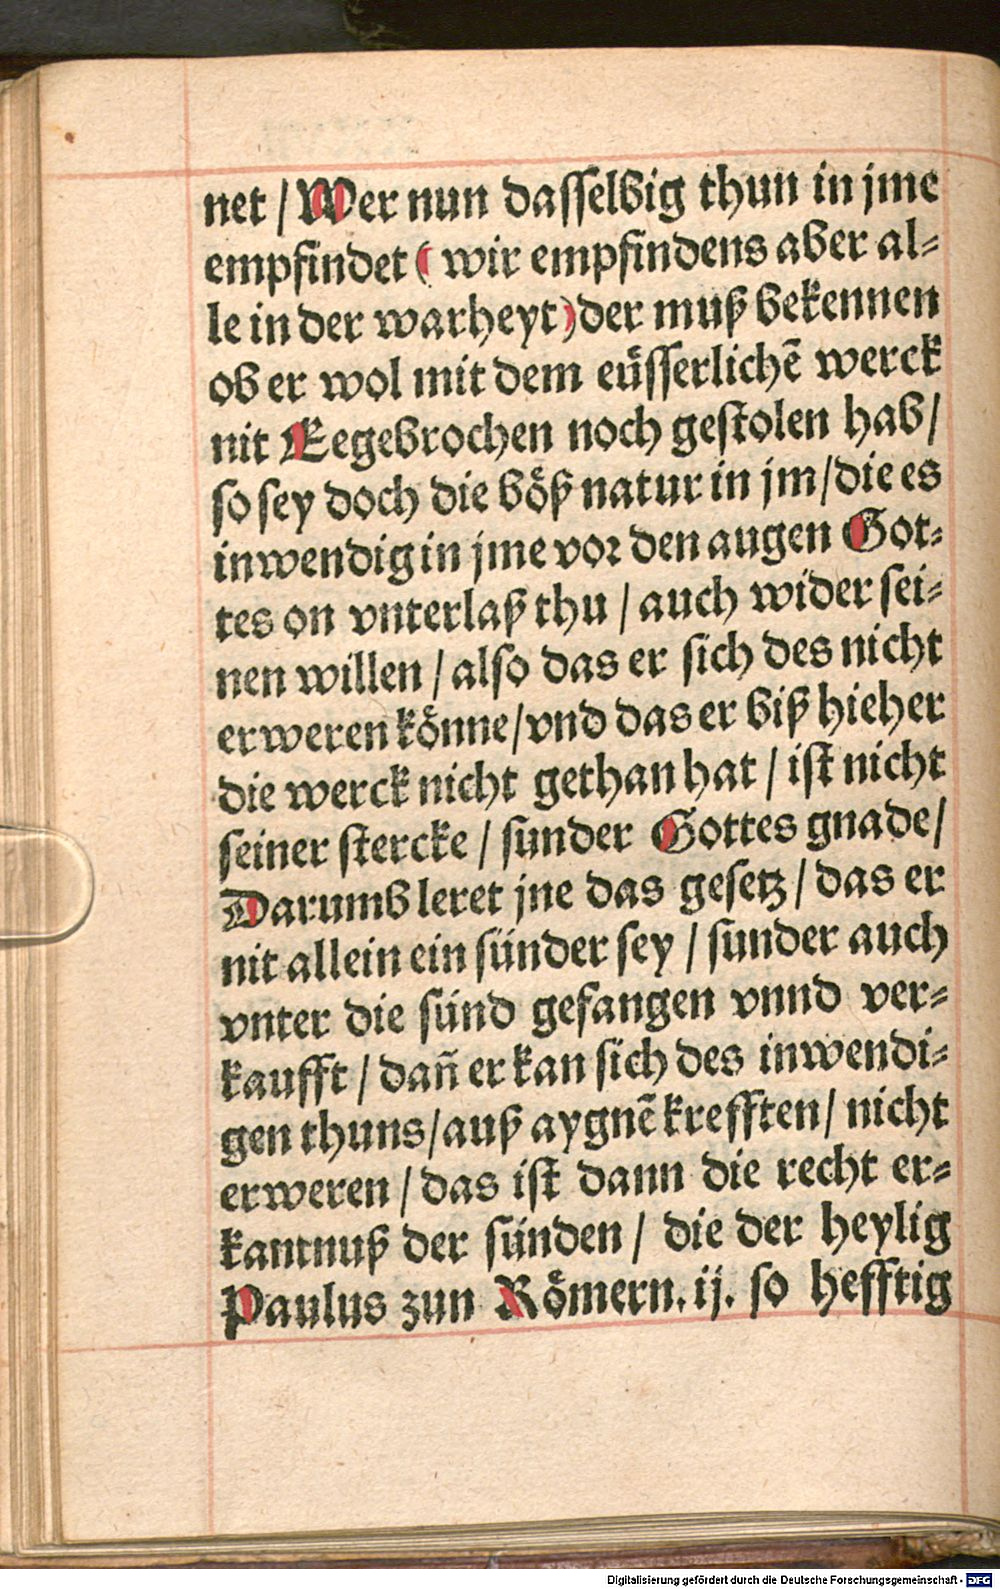 net / Wer nun dasselbig thun in jme
empfindet ( wir empfindens aber al⸗
le in der warheyt) der muß bekennen
ob er wol mit dem eüsserlichẽ werck
nit Eegebrochen noch gestolen hab /
so sey doch die böß natur in jm / die es
inwendig in jme vor den augen Got⸗
tes on vnterlaß thu / auch wider sei⸗
nen willen / also das er sich des nicht
erweren könne / vnd das er biß hieher
die werck nicht gethan hat / ist nicht
seiner stercke / sunder Gottes gnade /
Darumb leret jne das gesetz / das er
nit allein ein sünder sey / sunder auch
vnter die sünd gefangen vnnd ver⸗
kaufft / dañ er kan sich des inwendi⸗
gen thuns / auß aygnẽ krefften / nicht
erweren / das ist dann die recht er⸗
kantnuß der sünden / die der heylig
Paulus zun Römern. ij. so hefftig
Digitalisierung gefördert durch die Deutsche Forschungsgemeinschaft - DFG